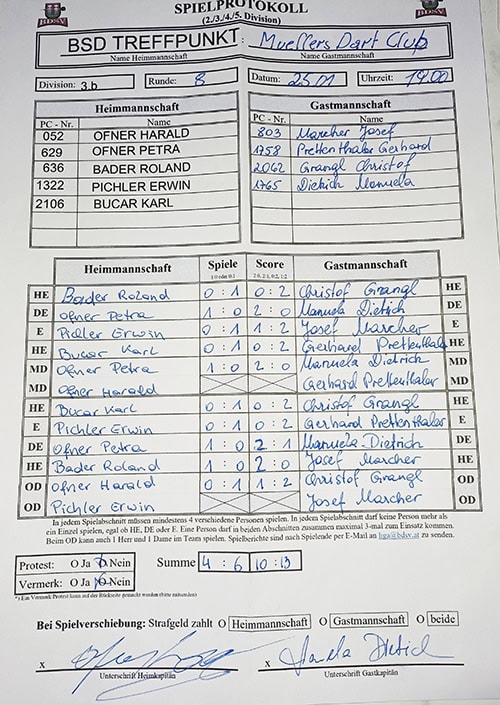 SPIELPROTOKOLL
(2./3./4./5. Division)
BDSV BDSV
BSD TREFFPUNKT : Muellers Dart Club
Name Heimmannschaft Name Gastmannschaft
Division: 3.b Runde: 8 Datum: 25.01 Uhrzeit: 19.00
Heimmannschaft Gastmannschaft
PC - Nr. Name PC - Nr. Name
052 OFNER HARALD 803 Marcher Josef
629 OFNER PETRA 1758 Prettenthaler Gerhard
636 BADER ROLAND 2062 Grangl Christof
1322 PICHLER ERWIN 1765 Dietrich Manuela
2106 BUCAR KARL
Heimmannschaft Spiele Score Gastmannschaft
1:0 oder 0:1 2:0, 2:1, 0:2, 1:2
HE Bader Roland 0 : 1 0 : 2 Christof Grangl HE
DE Ofner Petra 1 : 0 2 : 0 Manuela Dietrich DE
E Pichler Erwin 0 : 1 1 : 2 Josef Marcher E
HE Bucar Karl 0 : 1 0 : 2 Gerhard Prettenthaler HE
MD Ofner Petra 1 : 0 2 : 0 Manuela Dietrich MD
MD Ofner Harald Gerhard Prettenthaler MD
HE Bucar Karl 0 : 1 0 : 2 Christof Grangl HE
E Pichler Erwin 0 : 1 0 : 2 Gerhard Prettenthaler E
DE Ofner Petra 1 : 0 2 : 1 Manuela Dietrich DE
HE Bader Roland 1 : 0 2 : 0 Josef Marcher HE
OD Ofner Harald 0 : 1 1 : 2 Christof Grangl OD
OD Pichler Erwin Josef Marcher OD
In jedem Spielabschnitt müssen mindestens 4 verschiedene Personen spielen. In jedem Spielabschnitt darf keine Person mehr als
ein Einzel spielen, egal ob HE, DE oder E. Eine Person darf in beiden Abschnitten zusammen maximal 3-mal zum Einsatz kommen.
Beim OD kann auch 1 Herr und 1 Dame im Team spielen. Spielberichte sind nach Spielende per E-Mail an liga@bdsv.at zu senden.
Protest: O Ja O Nein Summe 4 : 6 10 : 13
Vermerk: O Ja O Nein
*) Ein Vermerk/Protest kann auf der Rückseite gemacht werden (bitte ankreuzen)
Bei Spielverschiebung: Strafgeld zahlt O Heimmannschaft O Gastmannschaft O beide
x x Manuela Dietrich
Unterschrift Heimkapitän Unterschrift Gastkapitän